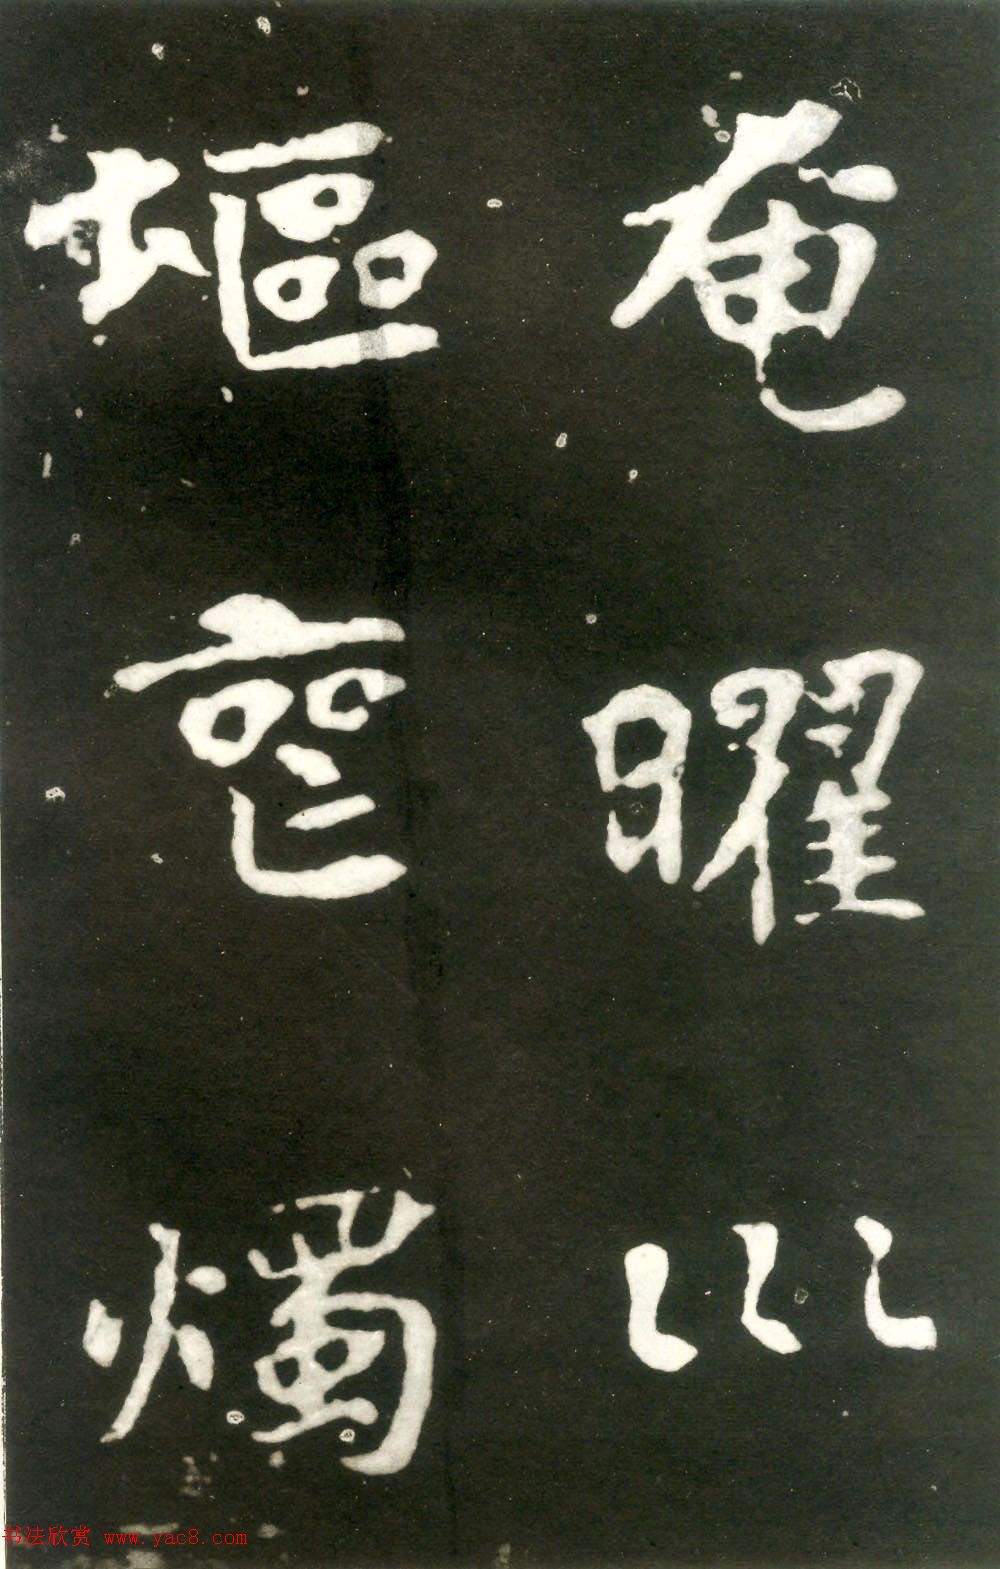 奄曜巛
塸㝓燭
书法欣赏 www.yac8.com